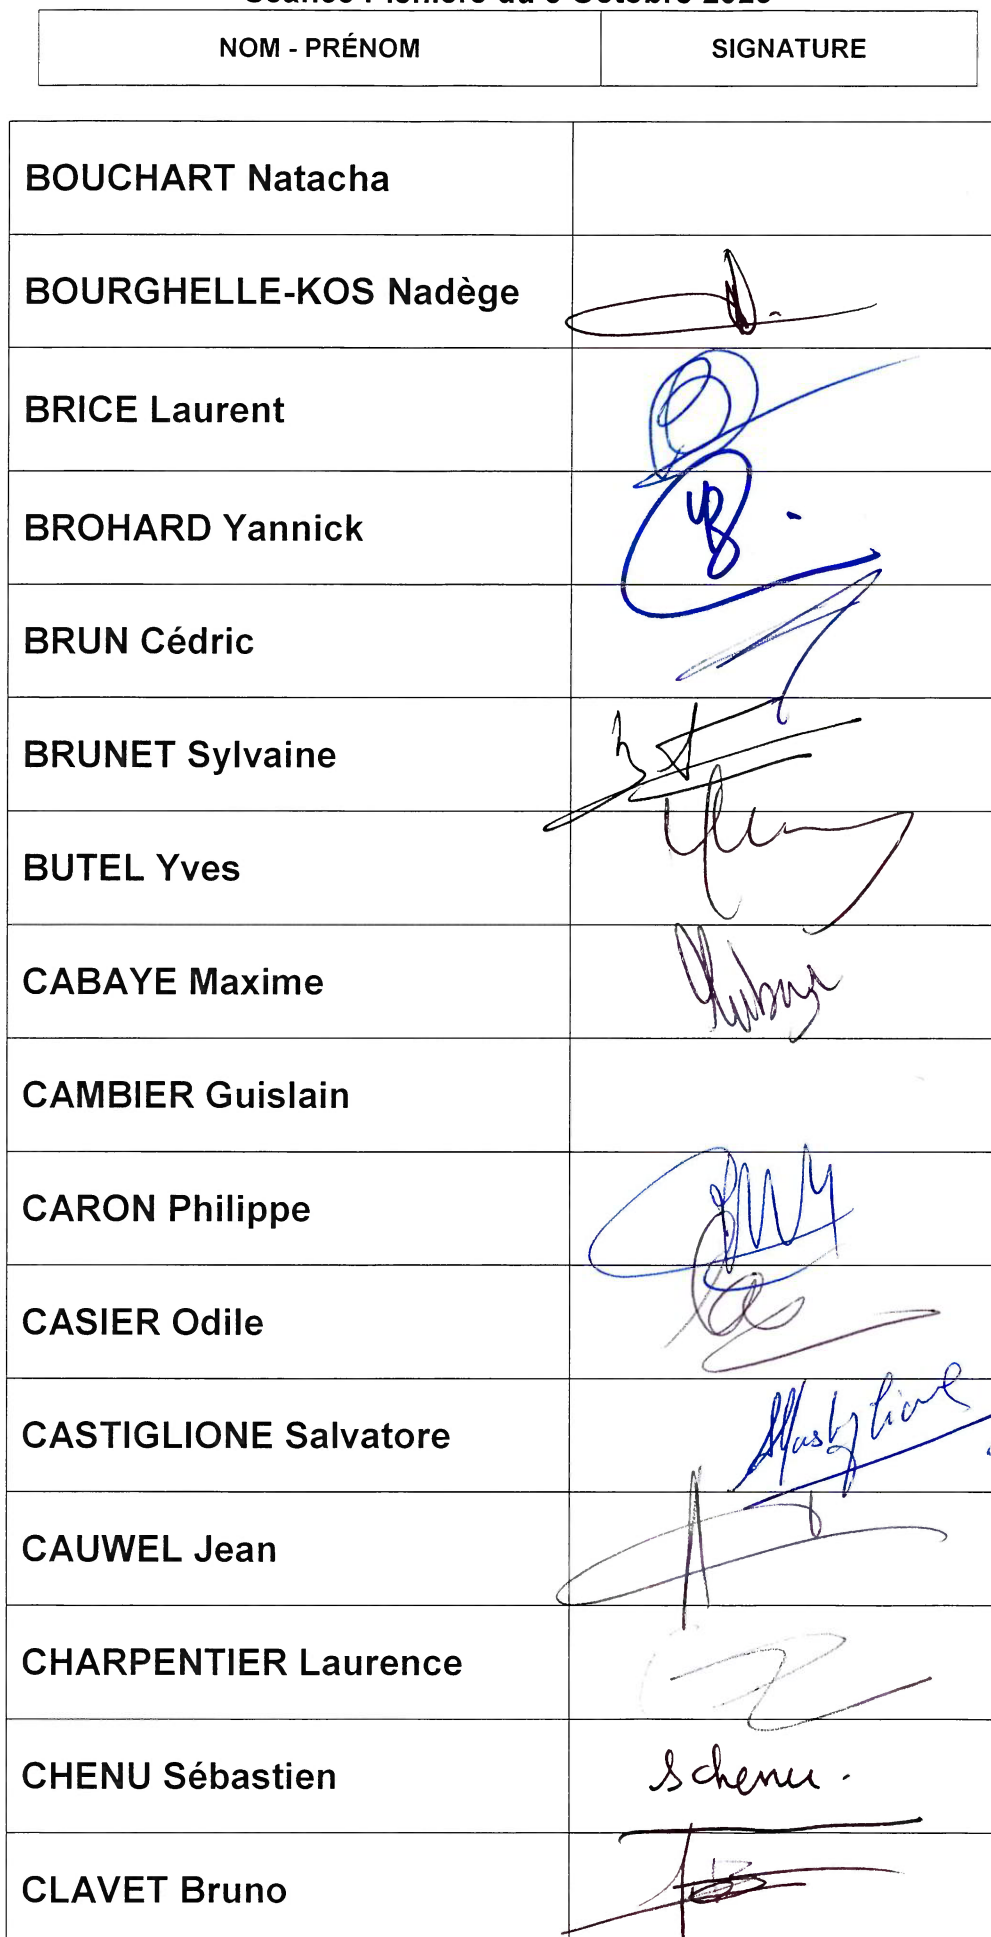 NOM - PRÉNOM SIGNATURE
BOUCHART Natacha
BOURGHELLE-KOS Nadège
BRICE Laurent
BROHARD Yannick
BRUN Cédric
BRUNET Sylvaine
BUTEL Yves
CABAYE Maxime
CAMBIER Guislain
CARON Philippe
CASIER Odile
CASTIGLIONE Salvatore
CAUWEL Jean
CHARPENTIER Laurence
CHENU Sébastien schenu.
CLAVET Bruno